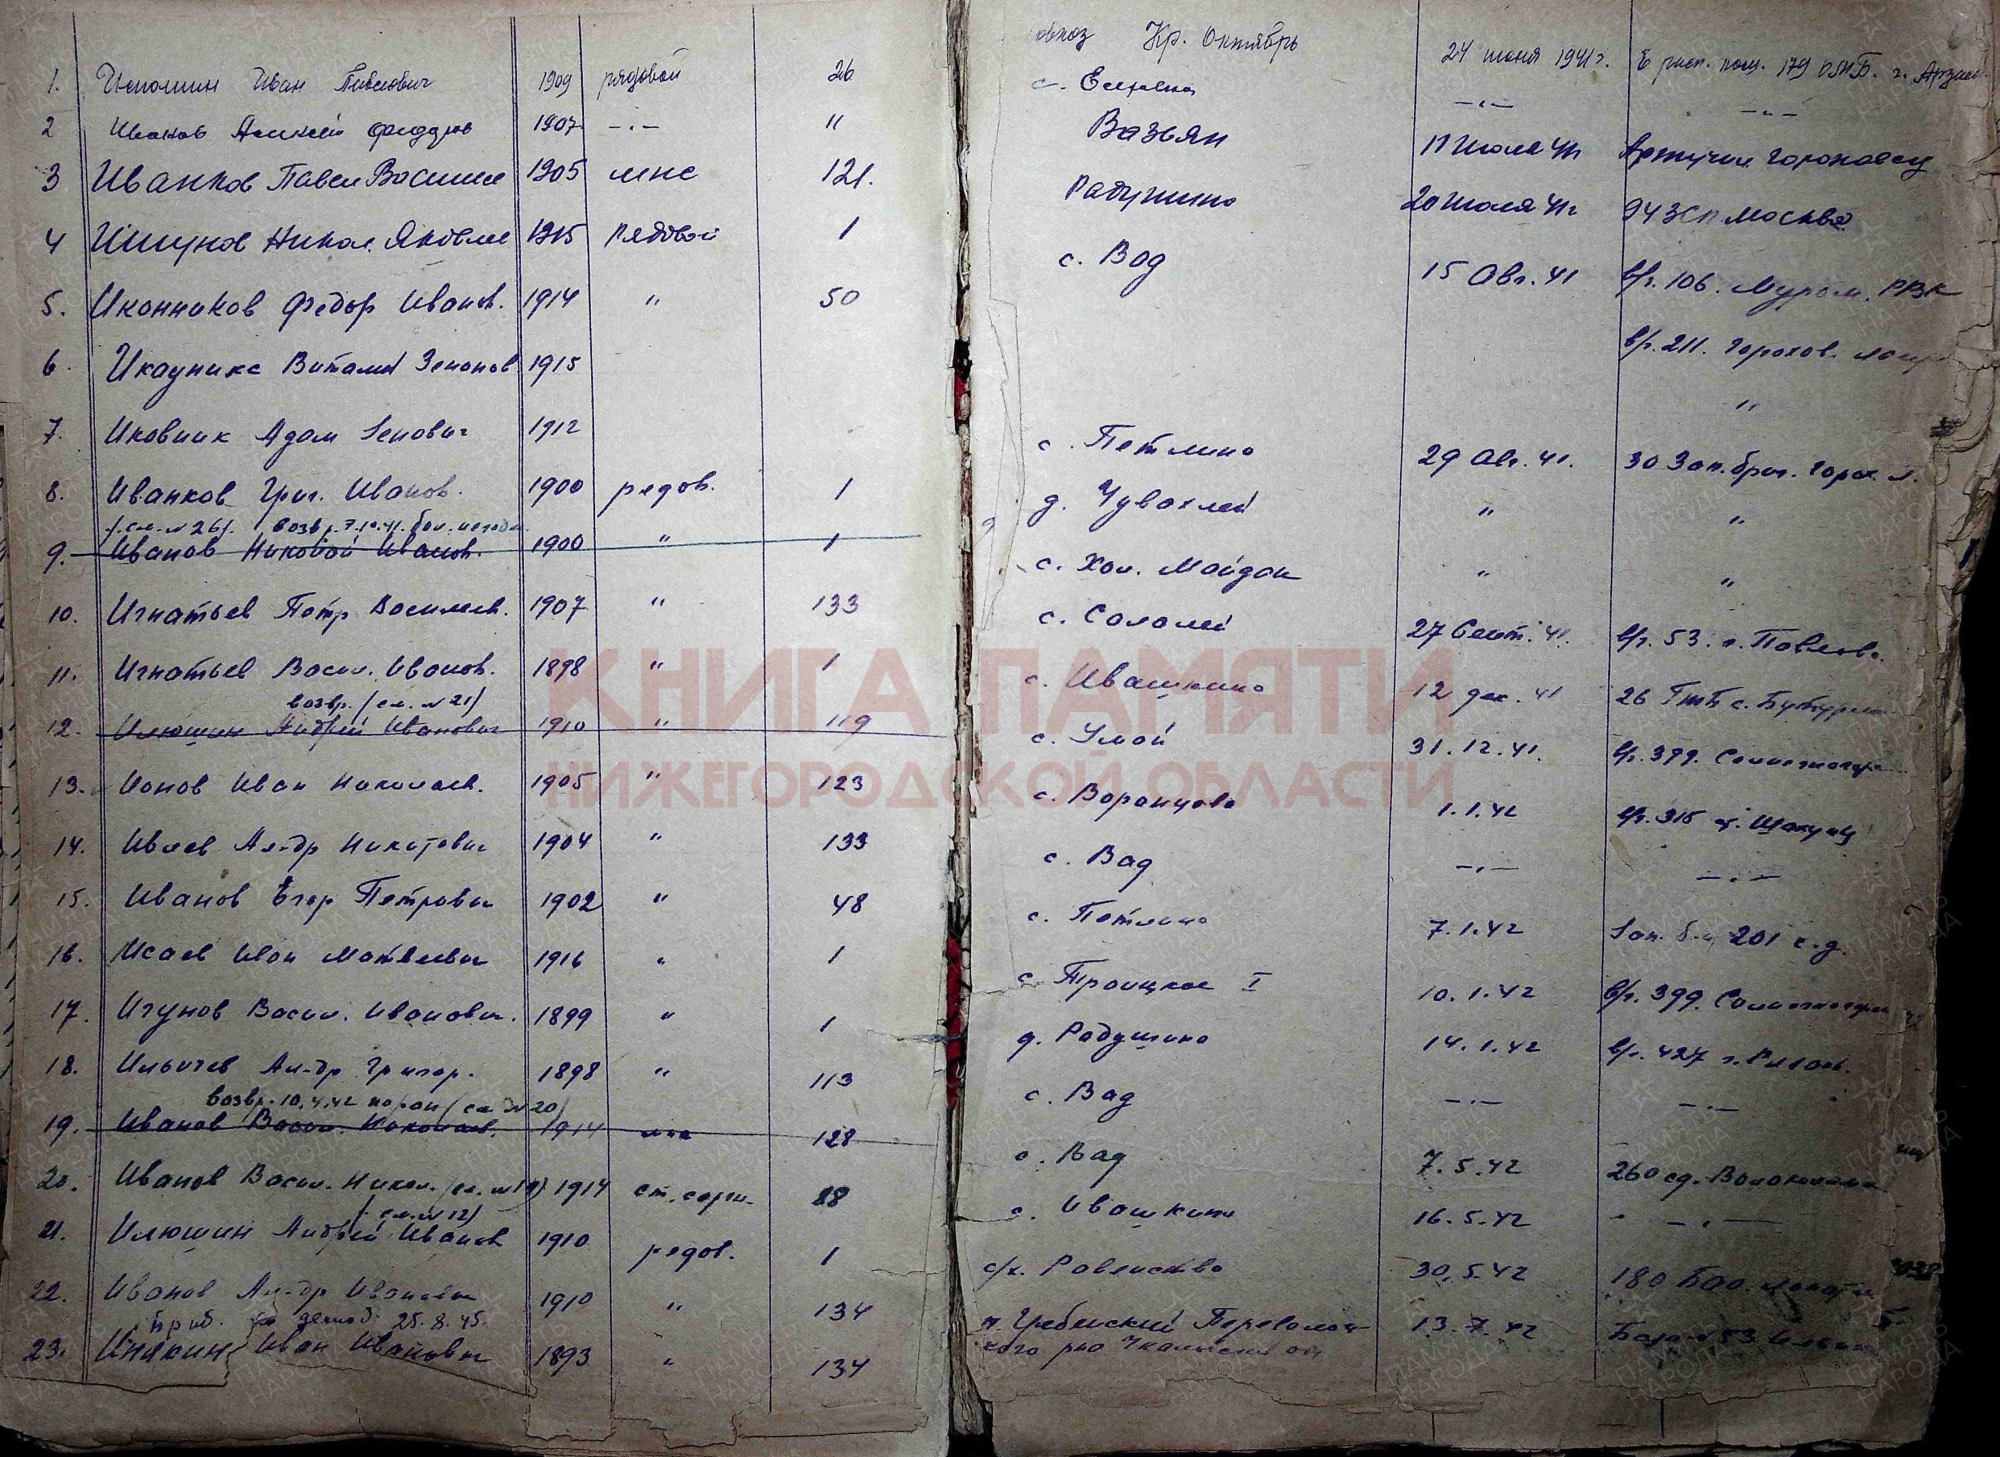 1. Иван Павлович 1909 рядовой 26
2 Иванов Алексей 1907 —·— "
3 Иванков Павел Василье 1905 мнс 121.
4 Ишунов Никол. Яковлев 1915 рядовой 1
5. Иконников Федор Иванов. 1914 " 50
6. Витал Зенонов 1915
7. Адам Зенович 1912
8. Иванков Григ. Иванов. 1900 рядов. 1
/см. № 26/. возвр. 7.10.41.
9. Иванов Николай Иванов. 1900 " 1
10. Игнатьев Петр Васильев. 1907 " 133
11. Игнатьев Васил. Иванов. 1898 " 1
возвр. /см. № 21/
12. Илюшин Андрей Иванович 1910 " 119
13. Ионов Иван Николаев. 1905 " 123
14. Ивлев Ал-др Никитович 1904 " 133
15. Иванов Егор Петрович 1902 " 48
16. Исаев Иван Матвеевич 1916 " 1
17. Игунов Васил. Иванович. 1899 " 1
18. Ильичев Ал-др Григор. 1898 " 113
возвр. 10.4.42 /см № 20/
19. Иванов Васил. Николаев. 1914 128
20. Иванов Васил. Никол. /см. №19/ 1914 ст. серж. 88
/см. № 12/
21. Илюшин Андрей Иванов 1910 рядов. 1
22. Иванов Ал-др Иванович 1910 " 134
приб. по демоб. 25.8.45.
23. Инякин Иван Иванович 1893 " 134
совхоз Кр. Октябрь 24 июня 1941 г. В расп. 179 г. Арзам
с. —·— —·—
Вазьян 17 Июля 41г Гороховец
Радушино 20 Июля 41г 94 ЗСП Москва
с. Вад 15 Авг. 41 в/ч. 106. Муром. РВК
в/ч. 211. Горохов. лагер
"
с. Петлино 29 Авг. 41. 30 Зап. бриг. Горох. л.
д. Чувахлей " "
с. Хол. Майдан " "
с. Салалей 27 Сент. 41. в/ч. 53. г. Павлово.
с. Ивашкино 12 дек. 41 26
с. Умай 31.12.41. в/ч. 399. Солнечногор
с. Воронцово 1.1.42 в/ч. 315
с. Вад —·— —·—
с. Петлино 7.1.42 Зап. б-н 201 с.д.
с. Троицкое I 10.1.42 в/ч. 399. Солнечногорск
д. Радушино 14.1.42 в/ч. 427 г. Рязань.
с. Вад —·— —·—
с. Вад 7.5.42 260 сд. Волоколамск
с. Ивашкино 16.5.42 —·—
с/х. Равенство 30.5.42 180
Переволоц- 13.7.42 База № 53
кого р-на
КНИГА ПАМЯТИ
НИЖЕГОРОДСКОЙ ОБЛАСТИ
ПАМЯТЬ НАРОДА